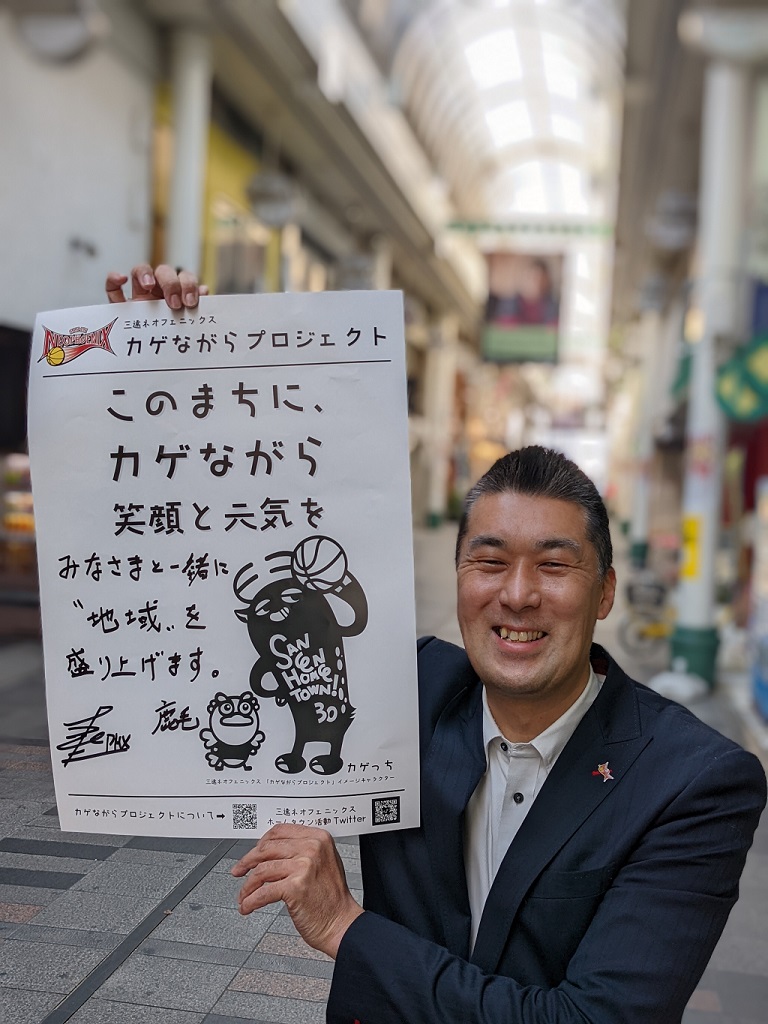 三遠ネオフェニックス
NEOPHOENIX
カゲながらプロジェクト
このまちに、
カゲながら
笑顔と元気を
みなさまと一緒に
〝地域〟を
盛り上げます。
鹿毛
SAN
EN
HOME
TOWN!
30
カゲっち
三遠ネオフェニックス 「カゲながらプロジェクト」イメージキャラクター
カゲながらプロジェクトについて→
三遠ネオフェニックス
ホームタウン活動 Twitter